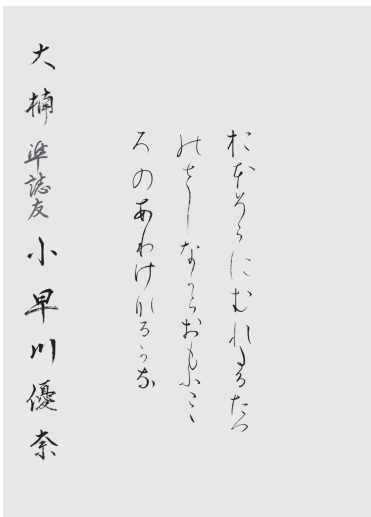 おほそらにむれゐるたつ
のさしなからおもふこゝ
ろのありけなるかな
大楠 準誌友 小早川優奈